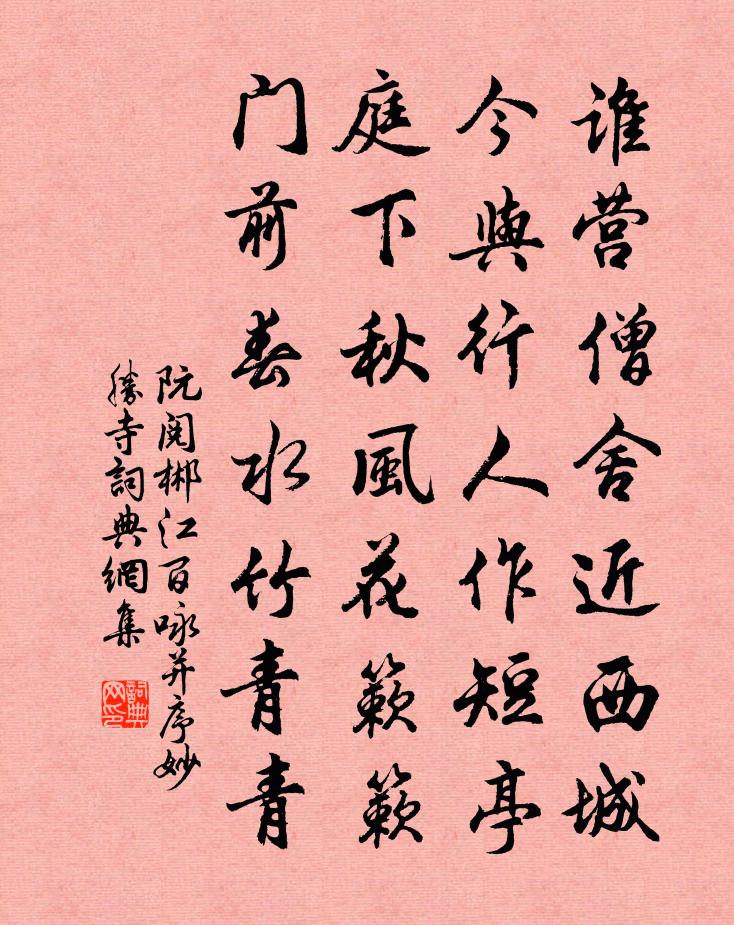 谁营僧舍近西城
今與行人作短亭
庭下秋風花簌簌
门前春水竹青青
阮阅郴江百咏并序妙
勝寺詞典網集
詞典
网印